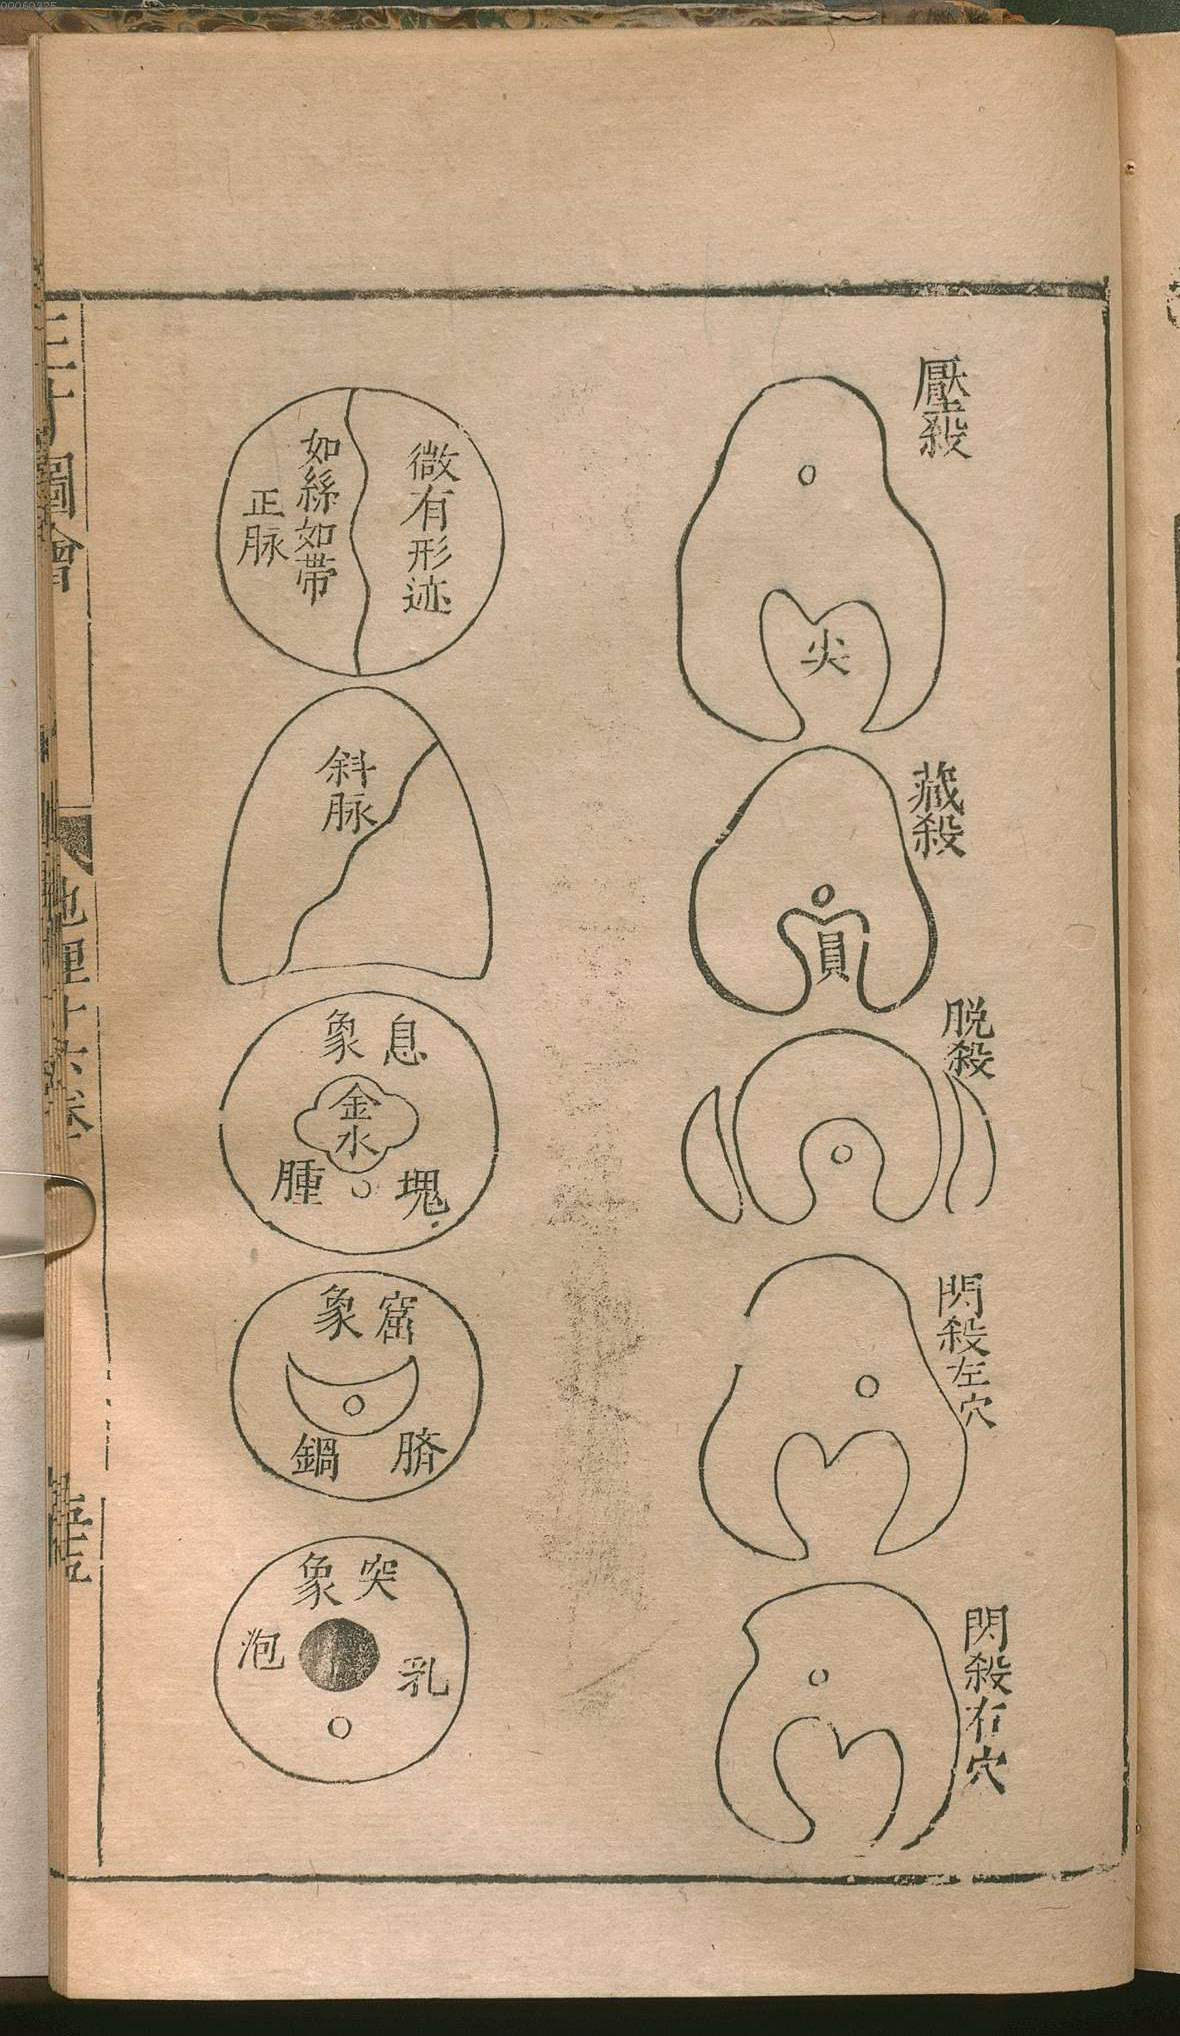 00069325
壓殺
尖
藏殺
員
脱殺
閃殺左穴
閃殺右穴
微有形迹
如絲如帶
正脉
斜脉
息象
金水
塊腫
窟象
臍鍋
突象
乳泡
三才圖會
地理十六卷